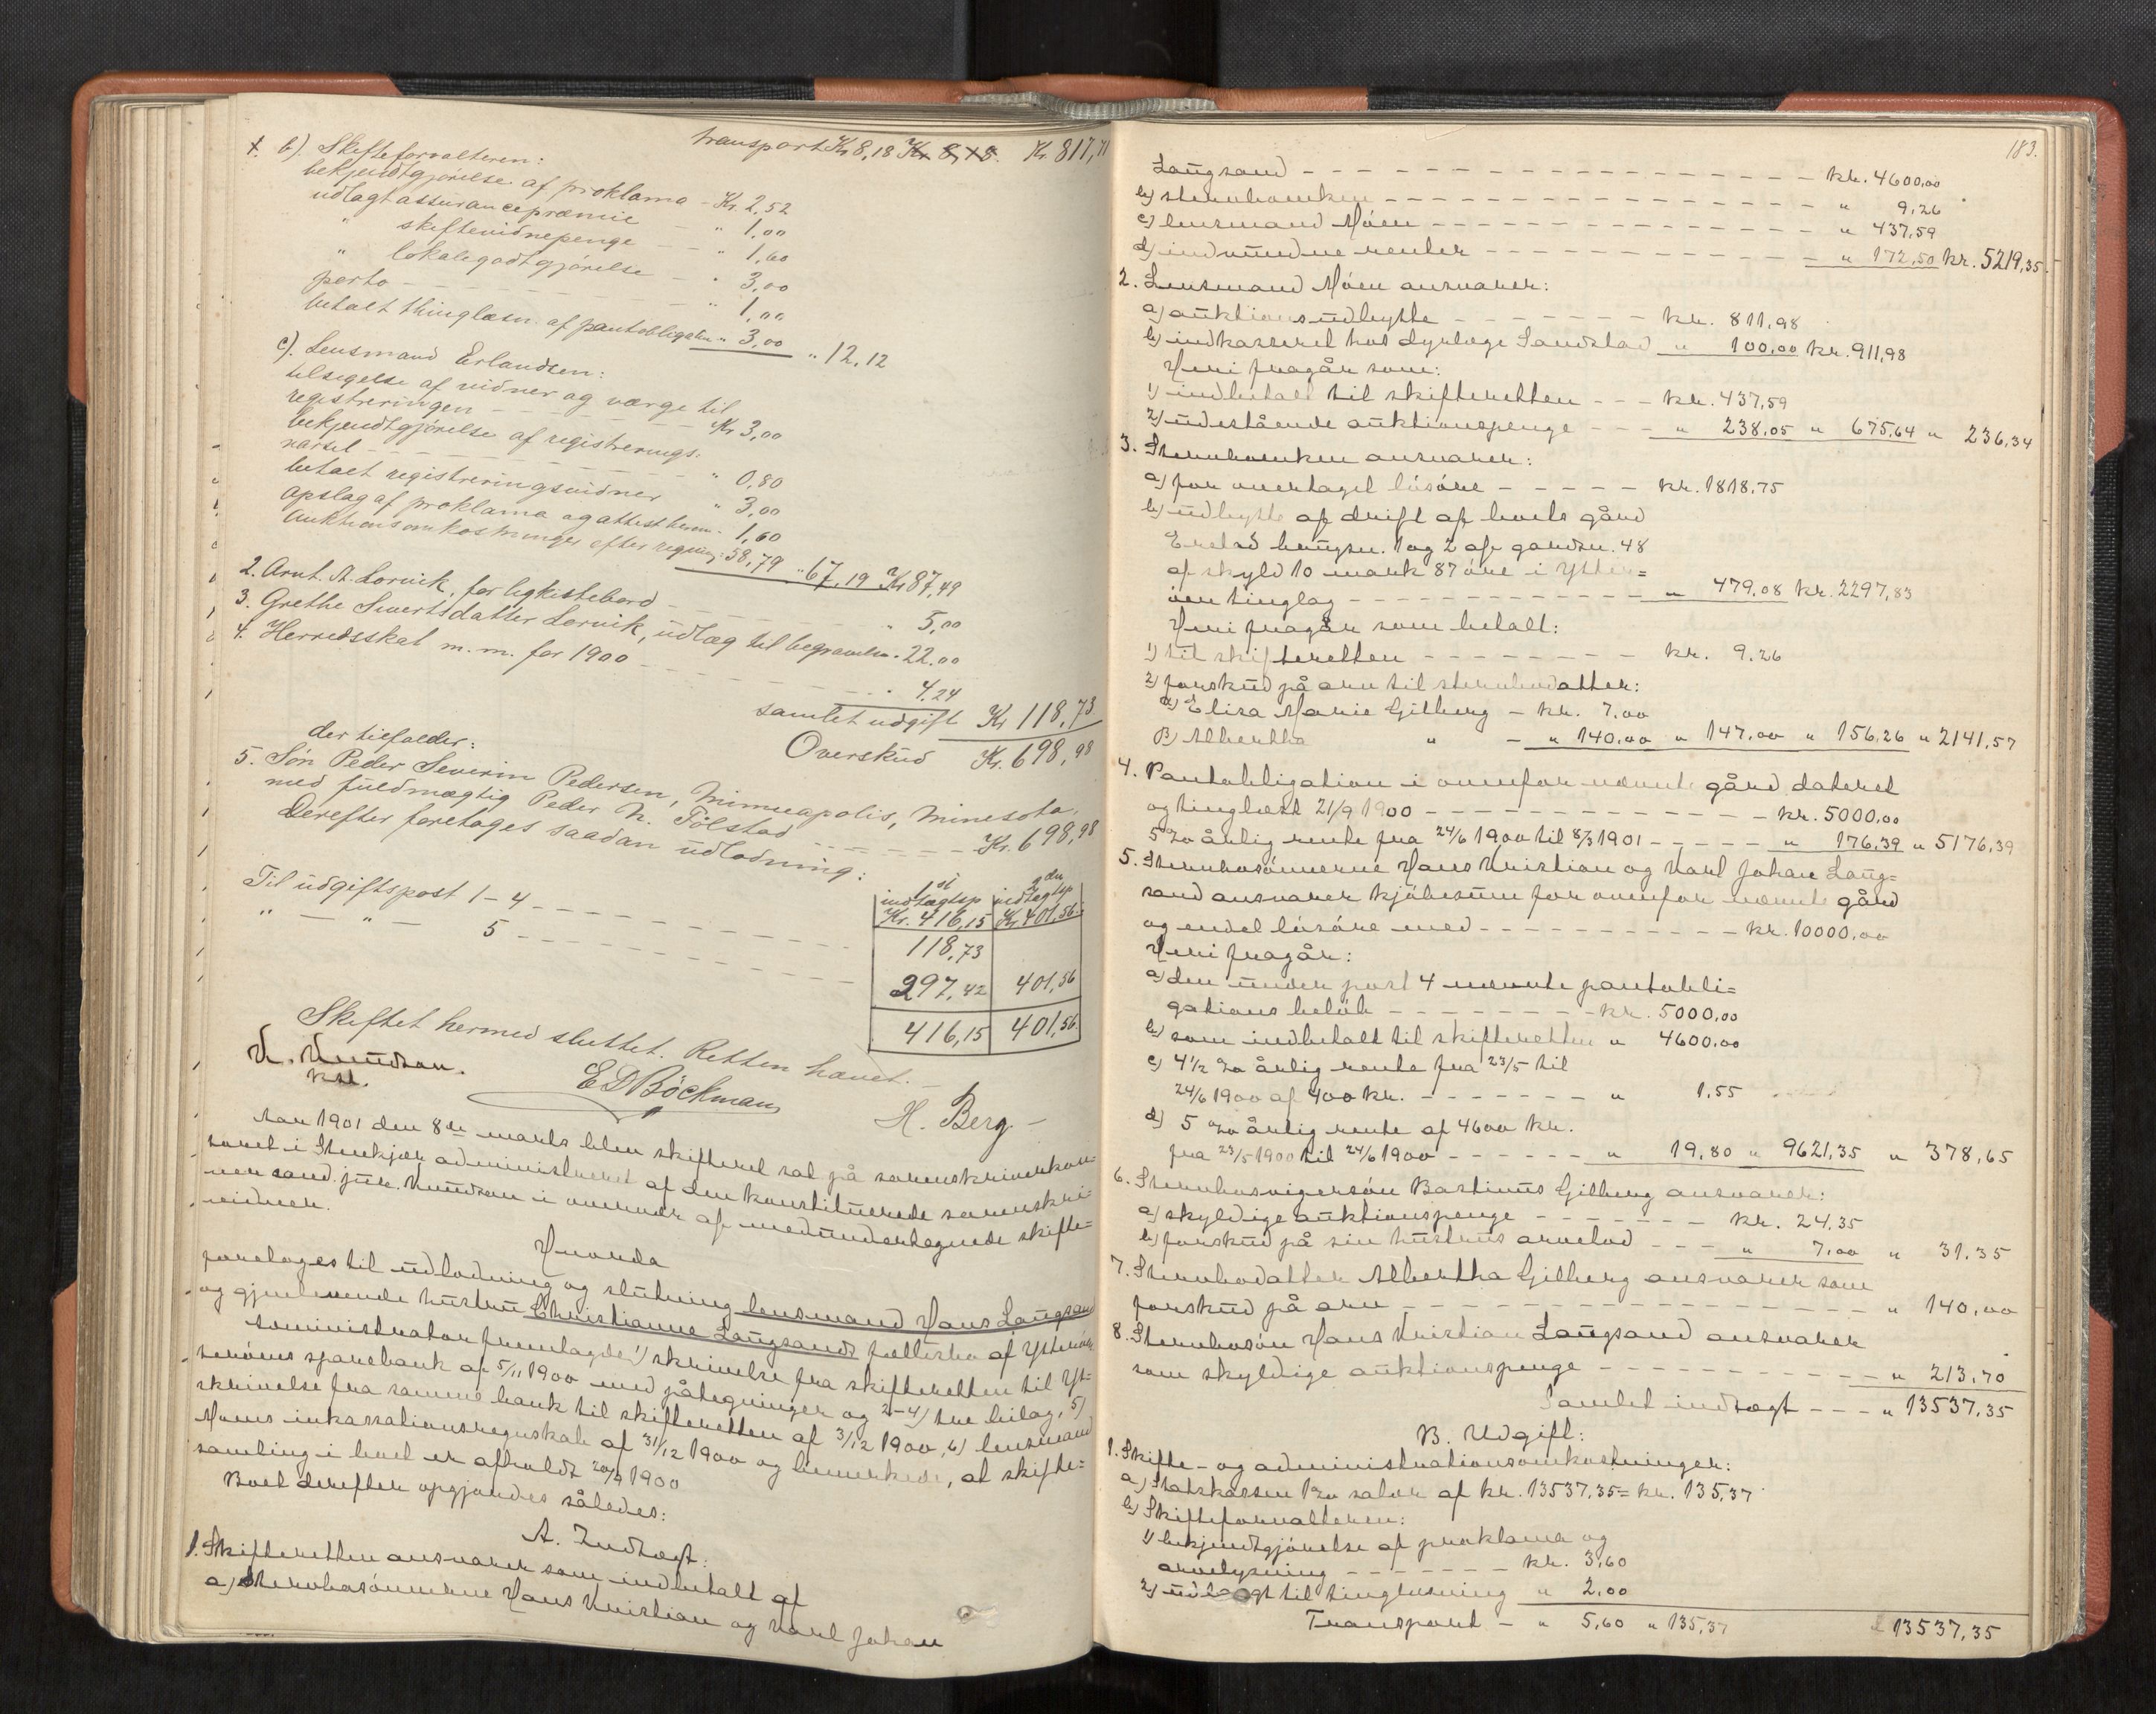 transport Kr 8,18 Kr. 8,18. Kr. 817,71
1. b). Skifteforvalteren:
bekjendtgjørelse af proklama - Kr. 2,52
udlagt assurancepræmie - " 1,00
" skiftevidnepenge - - " 1,60
" lokalegodtgjørelse - " 3,00
porto - - - - " 1,00
betalt thinglæsn. af pantobligation " 3,00 " 12,12
c). Lensmand Erlandsen:
tilsigelse af vidner og værge til
registreringen - - - - Kr. 3,00
bekjendtgjørelse af registrerings-
varsel - - - - " 0,80
betalt registreringsvidner " 3,00
opslag af proklama og attest herom - 1,60
Auktionsomkostninger efter regning: 58,79 " 67,19 Kr 87,49
2. Arnt. A. Lorvik, for ligkistebord - - - " 5,00
3. Grethe Sivertsdatter Lorvik, udlæg til begravelse - 22,00
4. Herredsskat m. m. for 1900 - - - - 4,24
samlet udgift Kr 118,73
Overskud Kr. 698,98
der tilfalder:
5. Søn Peder Severin Pedersen, Minneapolis, Minesota,
med fuldmægtig Peder N. Tølstad - - - Kr. 698,98
Derefter foretages saadan udlodning:
1st indtægtsp 2den indtægtsp
Kr. 416,15 Kr 401,56
Til udgiftspost 1-4 - - - - 118,73
" — " — 5 - - - - 297,42 401,56
416,15 401,56
Skiftet hermed sluttet. Retten hævet. -
K. Knudtzon.
kst.
E D Böckman
H. Berg -
Aar 1901 den 8de marts blev skifteret sat på sorenskriverkon-
toret i Stenkjær administreret af den konstituerede sorenskri-
ver cand. jur. Knudtzon i overvær af medundertegnede skifte-
vidner.
Hvorda
foretoges til udlodning og slutning lensmand Hans Langsand
og gjenlevende hustru Christianne Langsands fællesbo af Ytterøen
Administrator fremlagde 1) skrivelse fra skifteretten til Yt-
terøens sparebank af 5/11 1900 med påtegninger og 2-4) tre bilag, 5)
skrivelse fra samme bank til skifteretten af 3/12 1900, 6) lensmand
Moens inkassationsregnskab af 31/12 1900 og bemerkede, at skifte-
samling i boet er afholdt 20/9 1900
Boet derefter opgjordes således:
A. Indtægt:
1. Skifteretten ansvarer som indbetalt af
a) Stervbosønnerne Hans Kristian og Karl Johan
183.
Langsand - - - - kr. 4600,00
b) stervboenken - - - - " 9,26
c) lensmand Moen - - - - " 437,59
d) indvundne renter - - - - " 172,50 kr. 5219,35
2. Lensmand Moen ansvarer:
a) auktionsudbytte - - - - kr. 811,98
b) indkasseret hos dyrlæge Sandstad " 100,00 kr. 911,98
Heri fragår som:
1) indbetalt til skifteretten - - - kr. 437,59
2) udestående auktionspenge - - - " 238,05 " 675,64 " 236,34
3. Stervboenken ansvarer:
a) for overtaget løsøre - - - - kr. 1818,75
b) udbytte af drift af boets gård
Erstad brugsn. 1 og 2 af gårdsn. 48
af skyld 10 mark 87 øre i Ytter-
øen tinglag - - - - " 479,08 kr. 2297,83
Heri fragår som betalt:
1) til skifteretten - - - - kr. 9.26
2) forskud på arv til stervbodatter:
α) Elisa Marie Gilberg - kr. 7.00
β) Albertha " - " 140,00 " 147,00 " 156,26 " 2141,57
4. Pantobligation i ovenfor nævnte gård dateret
og tinglæst 21/9 1900 - - - - kr. 5000,00
5 % årlig rente fra 24/6 1900 til 8/3 1901 - - - - " 176,39 " 5176,39
5. Stervbosønnerne Hans Kristian og Karl Johan Lang-
sand ansvarer kjøbesum for ovenfor nævnte gård
og endel løsøre med - - - - kr. 10000,00
Heri fragår:
a) den under post 4 nævnte pantobli-
gations beløb - - - - kr. 5000,00
b) som indbetalt til skifteretten " 4600,00
c) 4 1/2 % årlig rente fra 23/5 til
24/6 1900 af 400 kr. - - - - " 1,55
d) 5 % årlig rente af 4600 kr.
fra 23/5 1900 til 24/6 1900 - - - - " 19,80 " 9621,35 " 378,65
6. Stervbosvigersøn Bastinus Gilberg ansvarer:
a) skyldige auktionspenge - - - - kr. 24,35
b) forskud på sin hustrus arvelod - - - " 7,00 " 31,35
7. Stervbodatter Albertha Gilberg ansvarer som
forskud på arv - - - - " 140,00
8. Stervbosøn Hans Kristian Langsand ansvarer
som skyldige auktionspenge - - - - " 213,70
Samlet indtægt - - - " 13537,35
B. Udgift:
1. Skifte- og administrationsomkostninger:
a) Statskassen 1 % salær af kr. 13537,35 = kr. 135,37
b) Skifteforvalteren:
1) bekjendtgjørelse af proklama og
arvelysning - - - - kr. 3,60
2) udlagt til tinglysning " 2,00
Transport - " 5,60 " 135,37 13537,35